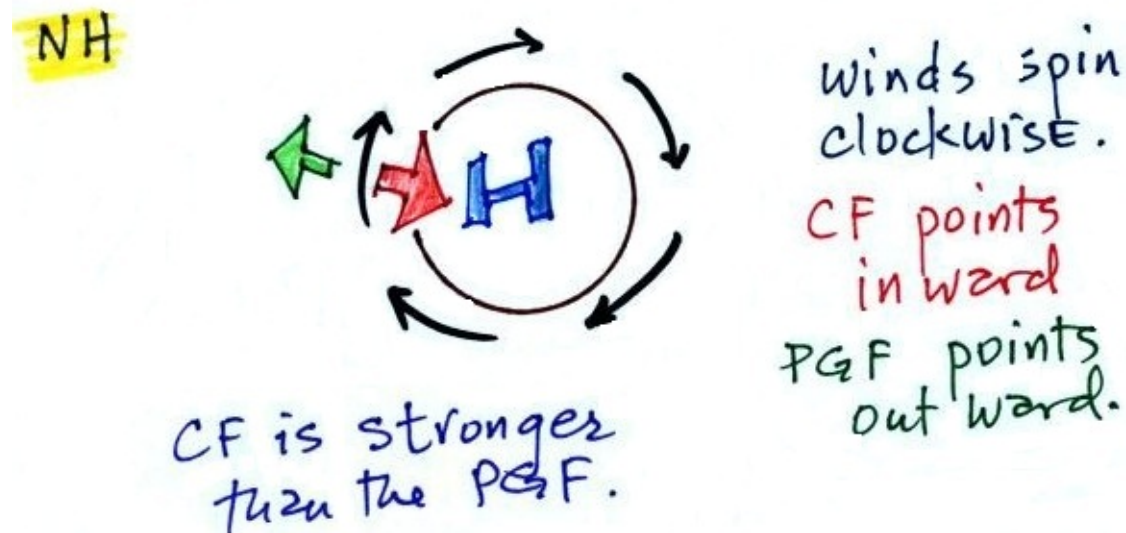 NH
H
winds spin
clockwise.
CF points
in ward
PGF points
out ward.
CF is stronger
than the PGF.